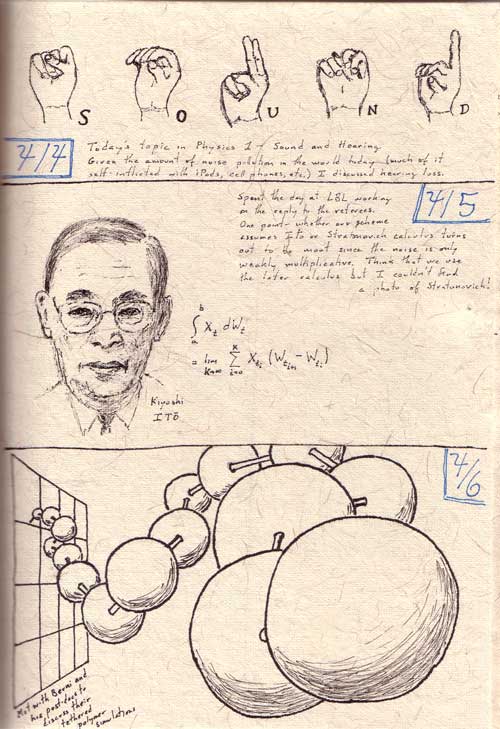 S O U N D
4/4
Today's topic in Physics 1 - Sound and Hearing
Given the amount of noise pollution in the world today (much of it
self-inflicted with iPods, cell phones, etc.) I discussed hearing loss.
4/5
Spent the day at LBL working
on the reply to the referees.
One point - whether our scheme
assumes Ito or Stratonovich calculus turns
out to be moot since the noise is only
weakly multiplicative. Think that we use
the later calculus but I couldn't find
a photo of Stratonovich!
∫_a^b X_t dW_t
= lim_{k→∞} Σ_{i=0}^k X_{t_i} (W_{t_{i+1}} - W_{t_i})
Kiyoshi
ITŌ
4/6
Met with Berni and
his post-docs to
discuss their
tethered
polymer
simulations